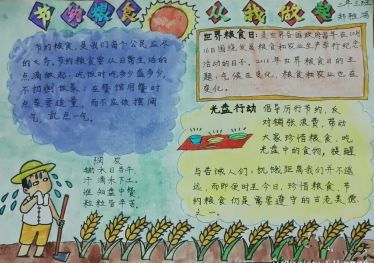 节约粮食 从我做起
二年三班
节约粮食,是我们每个公民应尽
的义务。节约粮食要从日常生活的
点滴做起,吃饭时吃多少盛多少,
不扔剩饭菜,在餐馆用餐时
点菜要适量,而不应该摆阔
气,乱点一气。
世界粮食日:是世界各国政府每年在10月
16日围绕发展粮食和农业生产举行纪念
活动的日子。2016年世界粮食日的主
题:气候在变化,粮食和农业也在
变化。
光盘行动 倡导厉行节约,反
对铺张浪费,带动
大家珍惜粮食,吃
光盘中的食物,提醒
与告诫人们:饥饿距离我们并不遥
远,而即便时至今日,珍惜粮食、节
约粮食仍是需要遵守的古老美德
之一。
悯农
锄禾日当午,
汗滴禾下土。
谁知盘中餐,
粒粒皆辛苦。